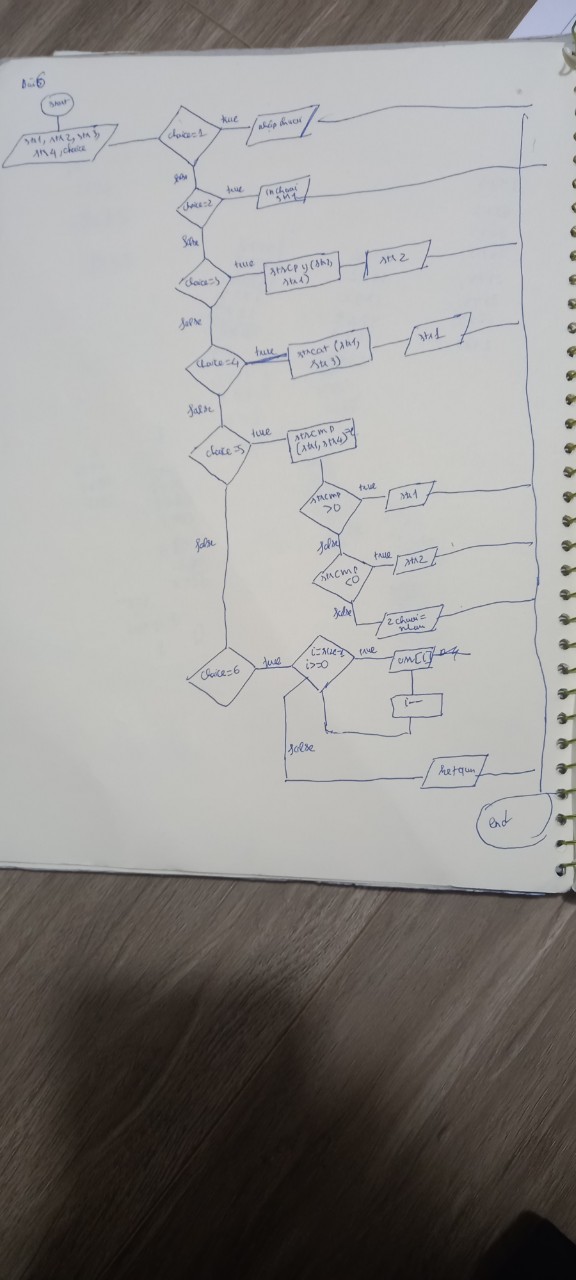 Bài 6
start
str1, str2, str3,
str4, choice
choice=1
true
nhập chuỗi
false
choice=2
true
in chuỗi
str1
false
choice=3
true
strcpy(str2,
str1)
str2
false
choice=4
true
strcat(str1,
str3)
str1
false
choice=5
true
strcmp
(str1, str4)
strcmp
>0
true
str1
false
strcmp
<0
true
str2
false
2 chuỗi =
nhau
false
choice=6
true
i>=0
true
i--
false
return
end